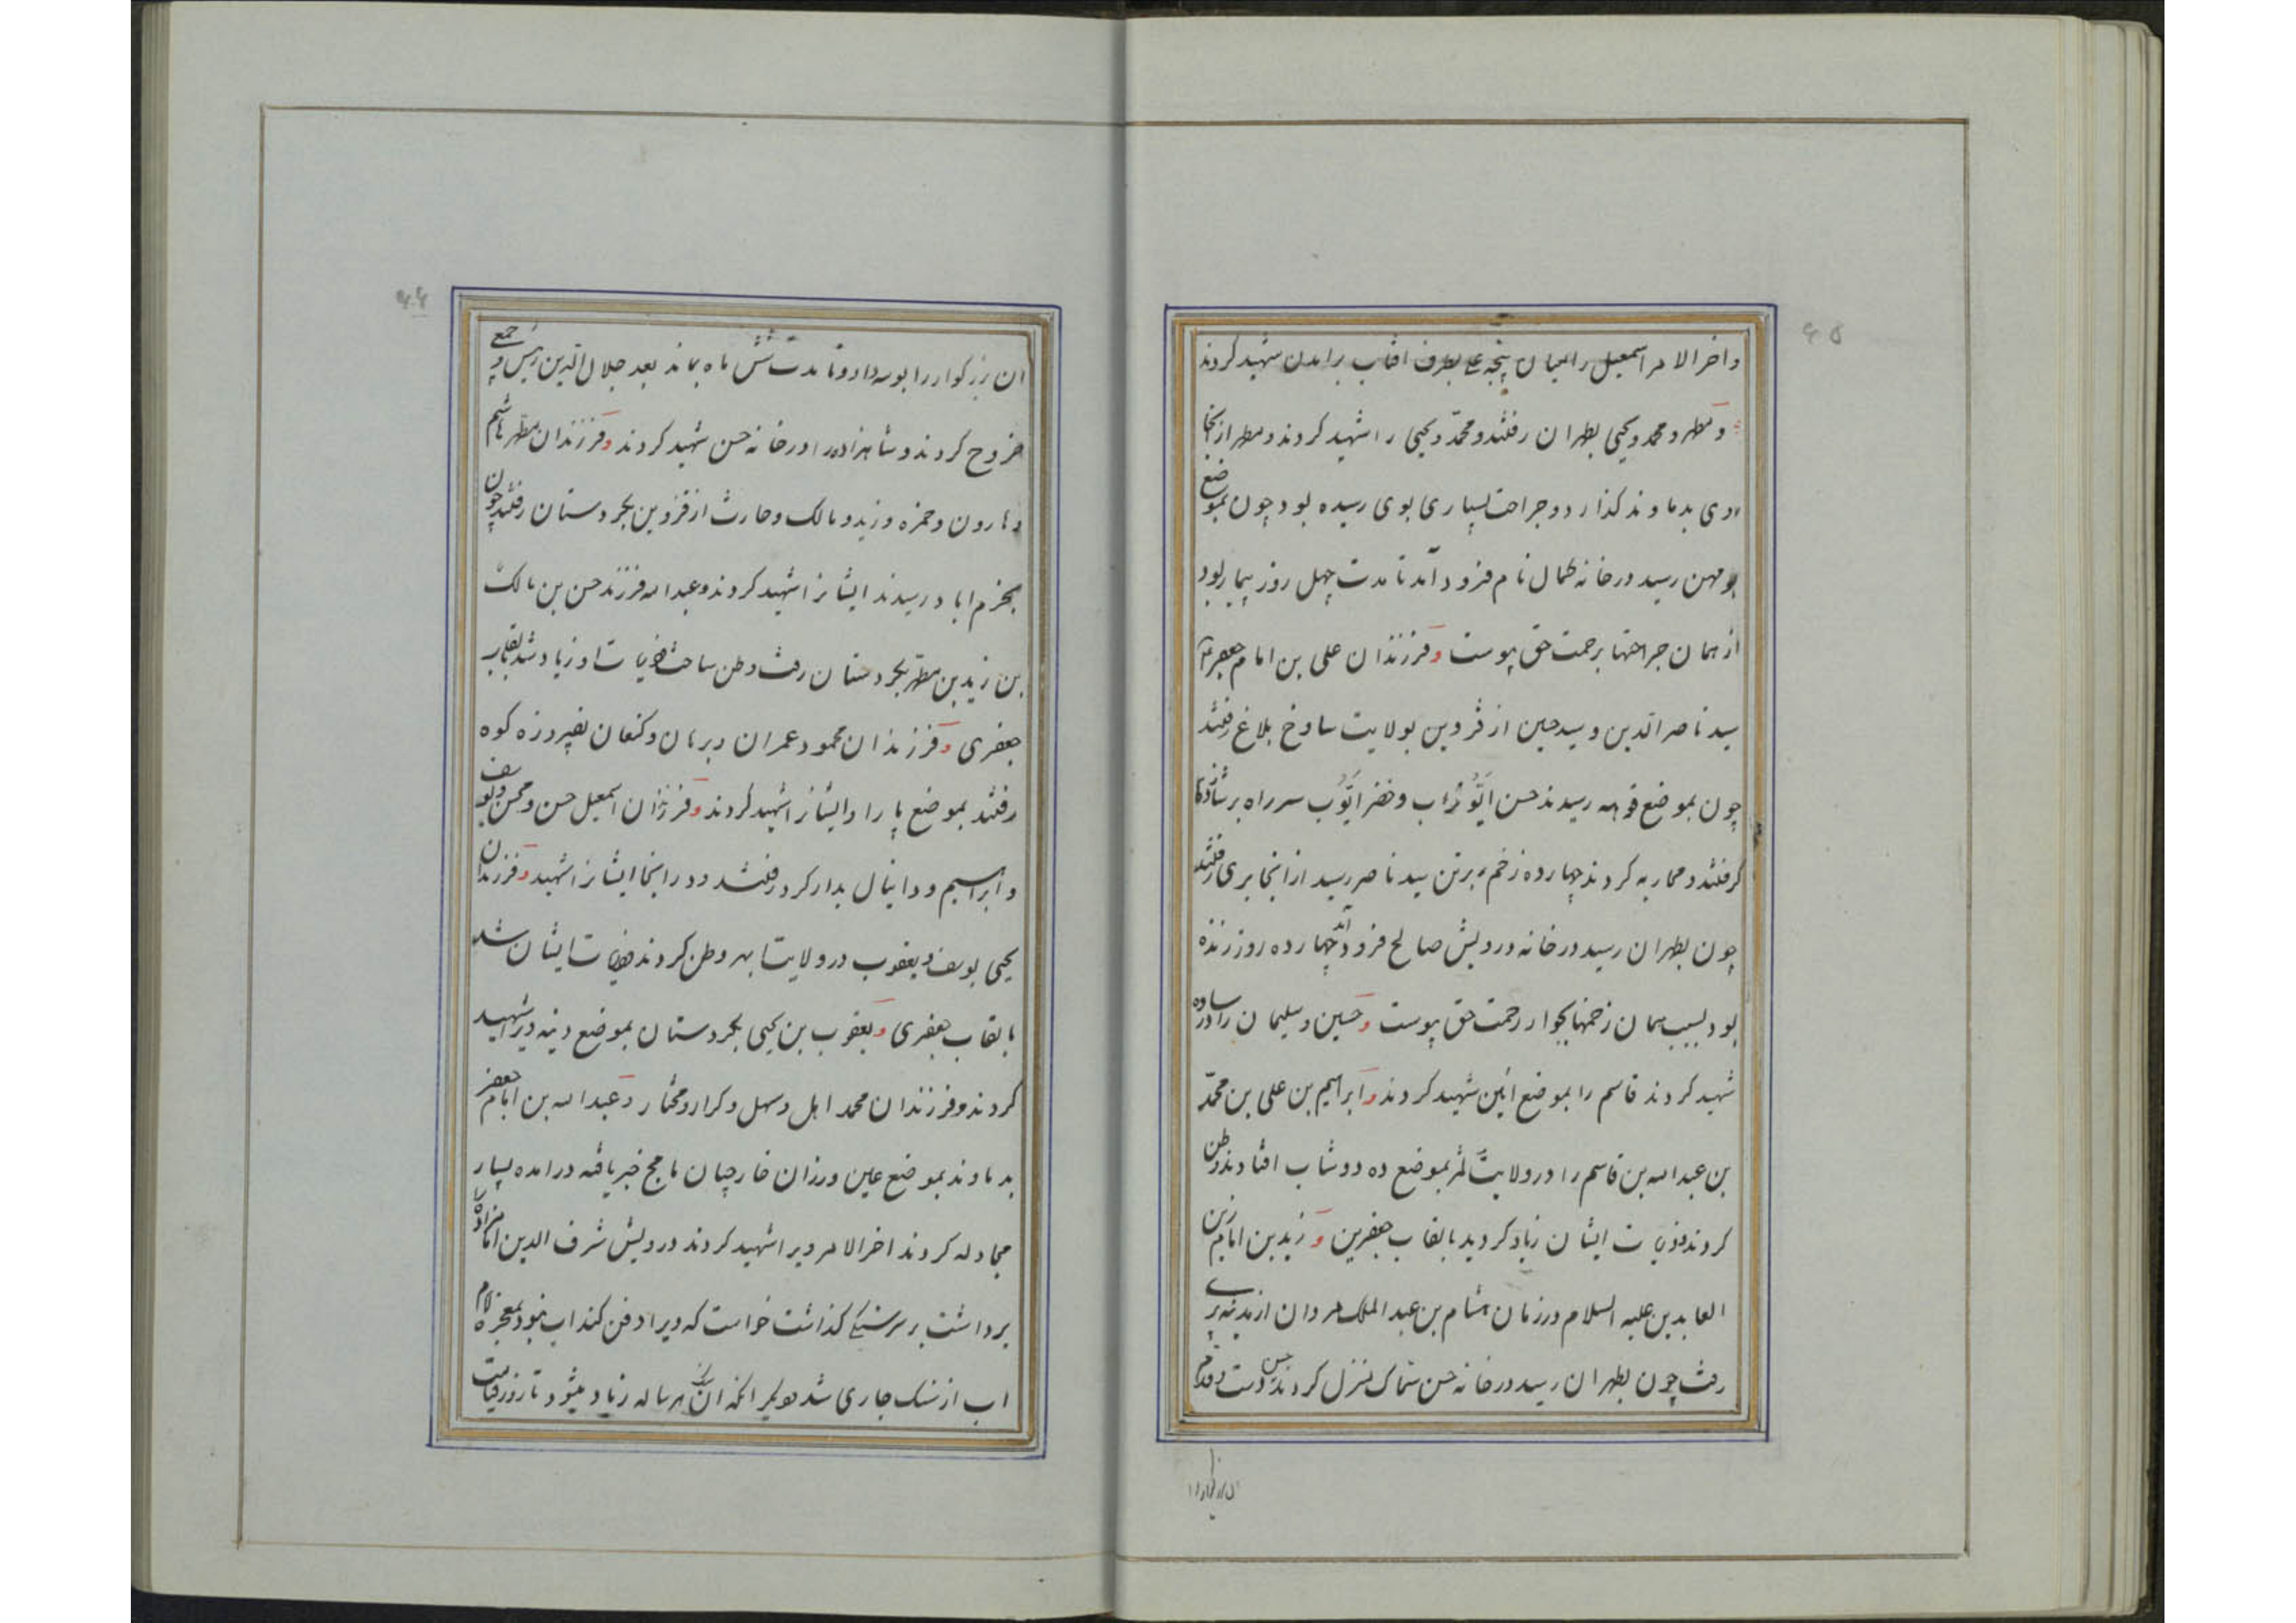 ۶۵
واخر الامر اسمعیل را بمیان پنجه علی بطرف افتاب برامدن شهید کردند
و مطهر و محمد و یحیی بطهران رفتند و محمد و یحیی را شهید کردند و مطهر از انجا
روی بدماوند کذارد و جراحت بسیاری بوی رسیده بود چون بموضع
بومهن رسید در خانه کمال نام فرود آمد تا مدت چهل روز بیمار بود
از همان جراحتها برحمت حق پیوست و فرزندان علی بن امام جعفر
سید ناصر الدین و سید حسین از قزوین بولایت ساوخ بلاغ رفتند
چون بموضع قوهه رسیدند حسن ایوب و خضر ایوب سر راه بر شاهزادها
کرفتند و محاربه کردند چهارده زخم بر تن سید ناصر رسید از انجا بری رفتند
چون بطهران رسید در خانه درویش صالح فرود آمد چهارده روز زنده
بود بسبب همان زخمها بجوار رحمت حق پیوست و حسین و سلیمان را در ساوه
شهید کردند قاسم را بموضع ائین شهید کردند و ابراهیم بن علی بن محمد
بن عبد الله بن قاسم را در ولایت لمر بموضع ده دوشاب افتادند و وطن
کردند ذریات ایشان زیاد کردید بالقاب جعفرین و زید بن امام زین
العابدین علیه السلام در زمان هشام بن عبد الملک مروان از مدینه بری
رفت چون بطهران رسید در خانه حسن سماک منزل کردند حسن دست و قدم
ان بزرکوار را
۶۶
ان بزرکوار را بوسه داد و تا مدت شش ماه بماند بعد جلال الدین رئیس و جمعی
خروج کردند و شاهزاده را در خانه حسن شهید کردند و فرزندان مطهر هاشم
و هارون و حمزه و زید و مالک و حارث از قزوین بجردستان رفتند چون
بخرم اباد رسیدند ایشانرا شهید کردند و عبد الله فرزند حسن بن مالک
بن زید بن مطهر بجردستان رفت وطن ساخت ذریات او زیاد شد بالقاب
جعفری و فرزندان محمود عمران و برهان و کنعان بفیروزه کوه
رفتند بموضع پا را و ایشانرا شهید کردند و فرزندان اسمعیل حسن و محسن و یوسف
و ابراهیم و دانیال بدار کرد رفتند و در انجا ایشانرا شهید و فرزندان
یحیی یوسف و یعقوب در ولایت ابهر وطن کردند ذریات ایشان شد
بالقاب جعفری و یعقوب بن یحیی بجردستان بموضع دینه ویرا شهید
کردند و فرزندان محمد اهل و سهل و کرار و مختار و عبد الله بن امام جعفر
بدماوند بموضع عین ورزان خارجیان مامج خبر یافته درامده بسیار
مجادله کردند اخر الامر ویرا شهید کردند درویش شرف الدین امامزاده را
برداشت بر سر سنکی کذاشت خواست که ویرا دفن کند اب نبود بمعجزه امام
اب از سنک جاری شد دیکر انکه ان سنک هر ساله زیاد میشود تا روز قیامت